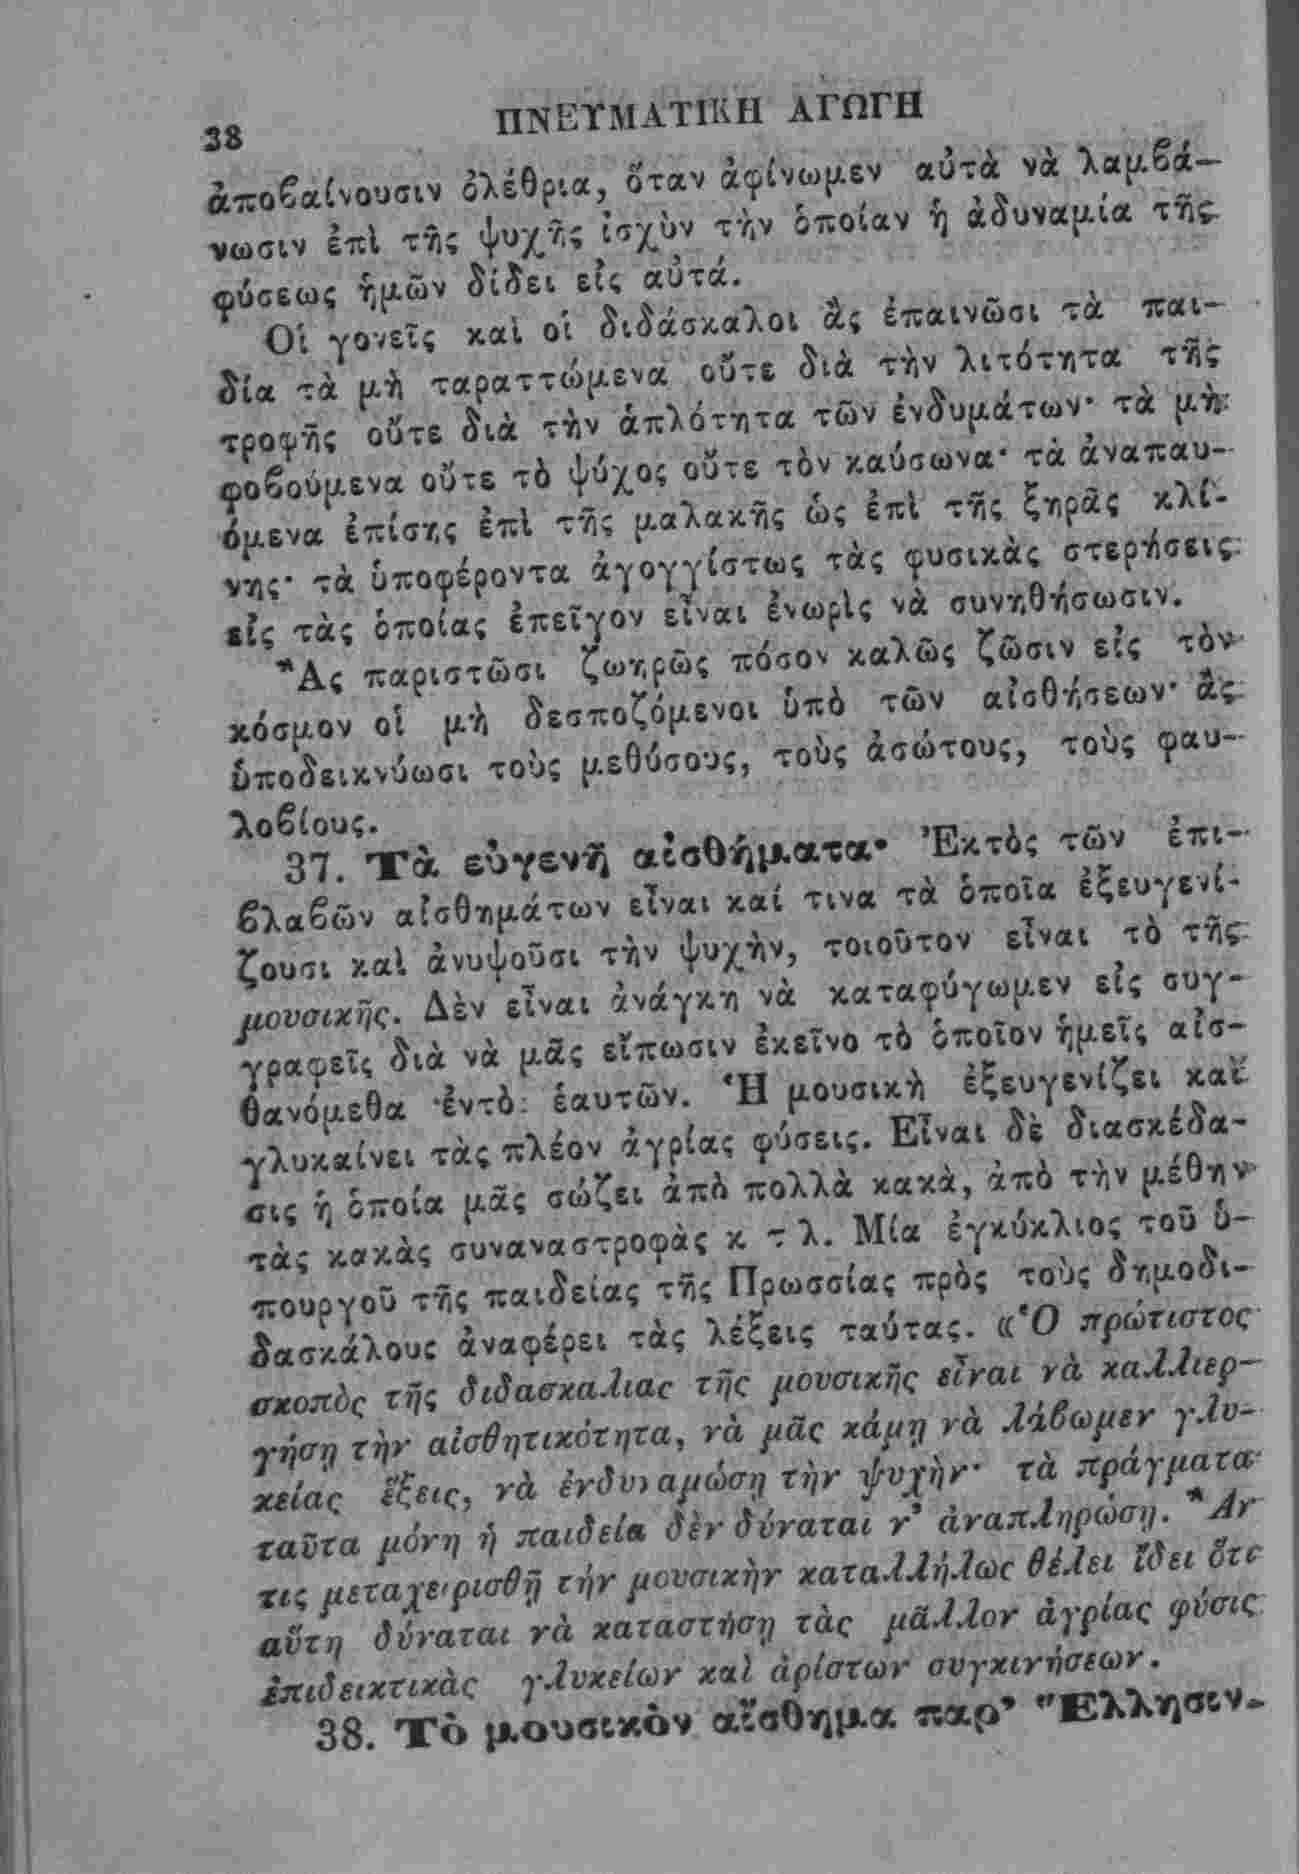 38
ΠΝΕΥΜΑΤΙΚΗ ΑΓΩΓΗ
ἀποβαίνουσιν ὀλέθρια, ὅταν ἀφίνωμεν αὐτὰ νὰ λαμβά-
νωσιν ἐπὶ τῆς ψυχῆς ἰσχὺν τὴν ὁποίαν ἡ ἀδυναμία τῆς
φύσεως ἡμῶν δίδει εἰς αὐτά.
Οἱ γονεῖς καὶ οἱ διδάσκαλοι ἂς ἐπαινῶσι τὰ παι-
δία τὰ μὴ ταραττώμενα οὔτε διὰ τὴν λιτότητα τῆς
τροφῆς οὔτε διὰ τὴν ἁπλότητα τῶν ἐνδυμάτων· τὰ μὴ
φοβούμενα οὔτε τὸ ψύχος οὔτε τὸν καύσωνα· τὰ ἀναπαυ-
όμενα ἐπίσης ἐπὶ τῆς μαλακῆς ὡς ἐπὶ τῆς ξηρᾶς κλί-
νης· τὰ ὑποφέροντα ἀγογγίστως τὰς φυσικὰς στερήσεις
εἰς τὰς ὁποίας ἐπεῖγον εἶναι ἐνωρὶς νὰ συνηθήσωσιν.
Ἂς παριστῶσι ζωηρῶς πόσον καλῶς ζῶσιν εἰς τὸν
κόσμον οἱ μὴ δεσποζόμενοι ὑπὸ τῶν αἰσθήσεων· ἂς
ὑποδεικνύωσι τοὺς μεθύσους, τοὺς ἀσώτους, τοὺς φαυ-
λοβίους.
37. Τὰ εὐγενῆ αἰσθήματα· Ἐκτὸς τῶν ἐπι-
βλαβῶν αἰσθημάτων εἶναι καί τινα τὰ ὁποῖα ἐξευγενί-
ζουσι καὶ ἀνυψοῦσι τὴν ψυχὴν, τοιοῦτον εἶναι τὸ τῆς
μουσικῆς. Δὲν εἶναι ἀνάγκη νὰ καταφύγωμεν εἰς συγ-
γραφεῖς διὰ νὰ μᾶς εἴπωσιν ἐκεῖνο τὸ ὁποῖον ἡμεῖς αἰσ-
θανόμεθα ἐντὸς ἑαυτῶν. Ἡ μουσικὴ ἐξευγενίζει καὶ
γλυκαίνει τὰς πλέον ἀγρίας φύσεις. Εἶναι δὲ διασκέδα-
σις ἡ ὁποία μᾶς σώζει ἀπὸ πολλὰ κακὰ, ἀπὸ τὴν μέθην
τὰς κακὰς συναναστροφὰς κ τ λ. Μία ἐγκύκλιος τοῦ ὑ-
πουργοῦ τῆς παιδείας τῆς Πρωσσίας πρὸς τοὺς δημοδι-
δασκάλους ἀναφέρει τὰς λέξεις ταύτας. «Ὁ πρώτιστος
σκοπὸς τῆς διδασκαλιας τῆς μουσικῆς εἶναι νὰ καλλιερ-
γήσῃ τὴν αἰσθητικότητα, νὰ μᾶς κάμῃ νὰ λάβωμεν γλυ-
κείας ἕξεις, νὰ ἐνδυναμώσῃ τὴν ψυχὴν· τὰ πράγματα
ταῦτα μόνη ἡ παιδεία δὲν δύναται ν' ἀναπληρώσῃ. Ἂν
τις μεταχειρισθῇ τὴν μουσικὴν καταλλήλως θέλει ἴδει ὅτι
αὕτη δύναται νὰ καταστήσῃ τὰς μᾶλλον ἀγρίας φύσις
ἐπιδεικτικὰς γλυκείων καὶ ἀρίστων συγκινήσεων.
38. Τὸ μουσικὸν αἴσθημα παρ' Ἕλλησιν-